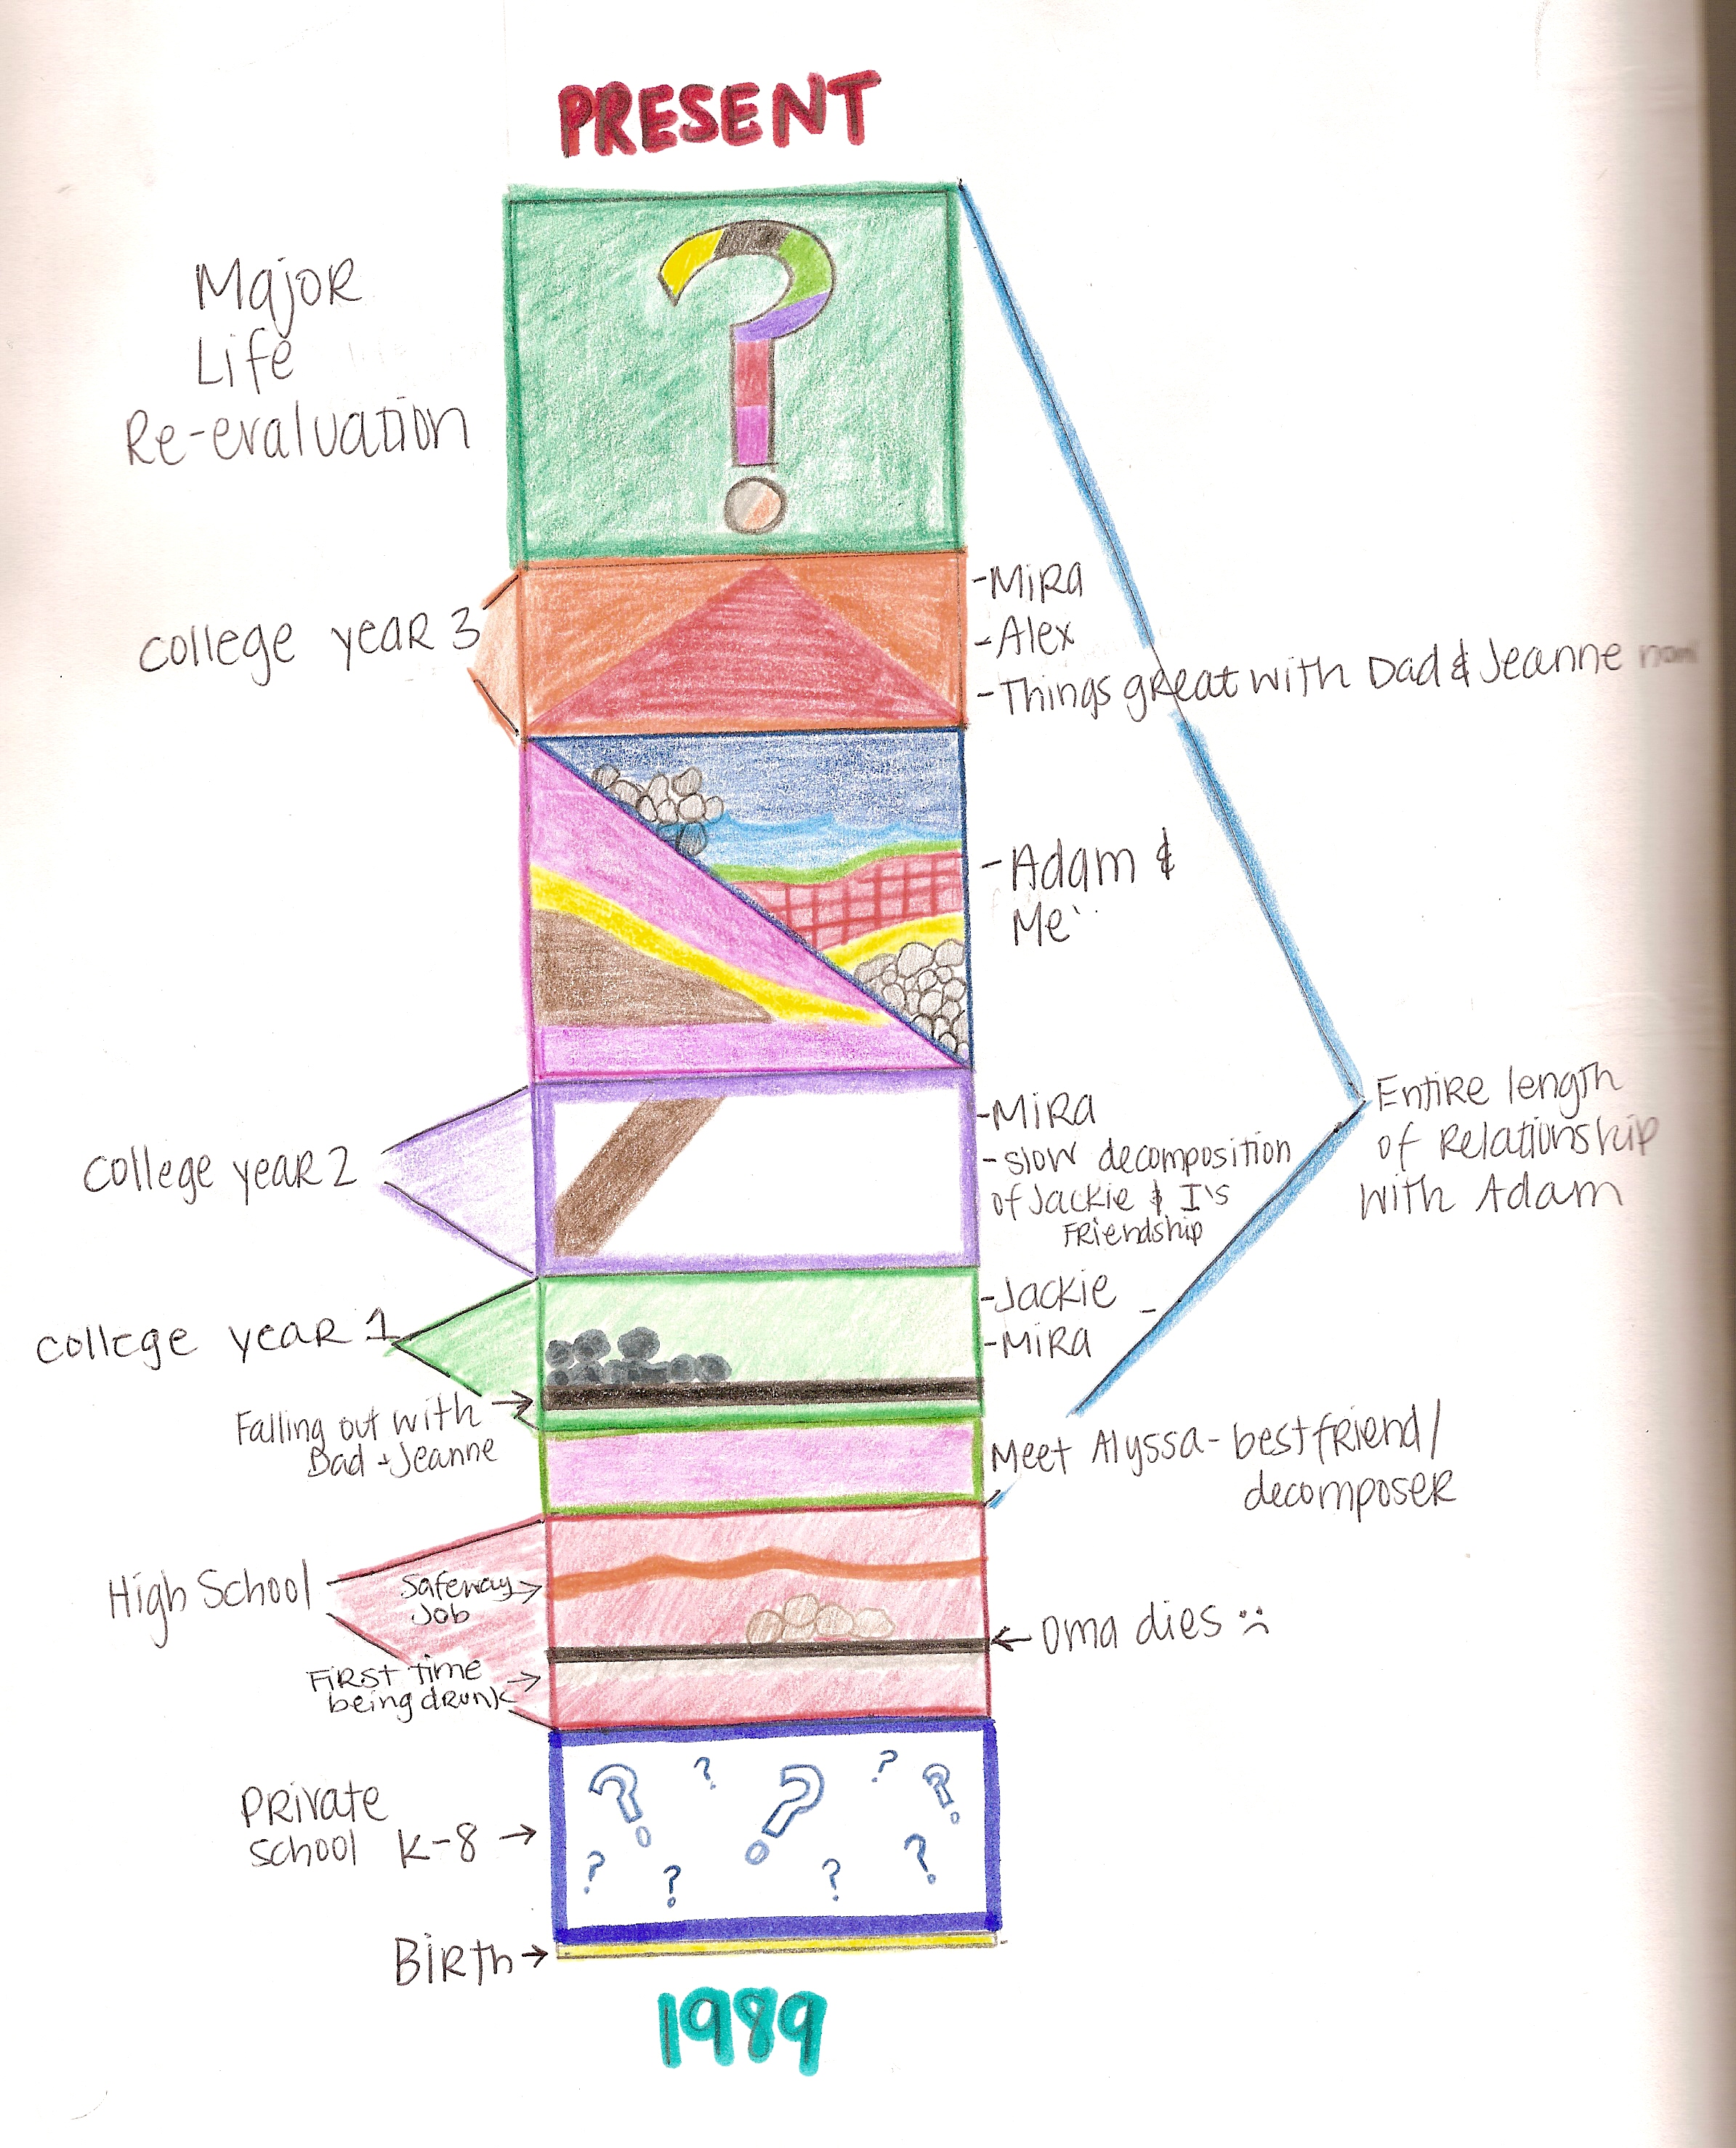 PRESENT
Major
Life
Re-evaluation
College year 3
-Mira
-Alex
-Things great with Dad & Jeanne now
-Adam &
Me
College year 2
-Mira
-slow decomposition
of Jackie & I's
Friendship
Entire length
of Relationship
with Adam
College year 1
-Jackie
-Mira
Falling out with
Dad + Jeanne
Meet Alyssa - best friend/
decomposer
High School
Safeway
Job
Oma dies :(
First time
being drunk
? ? ? ? ?
? ? ? ?
Private
School K-8
Birth
1989